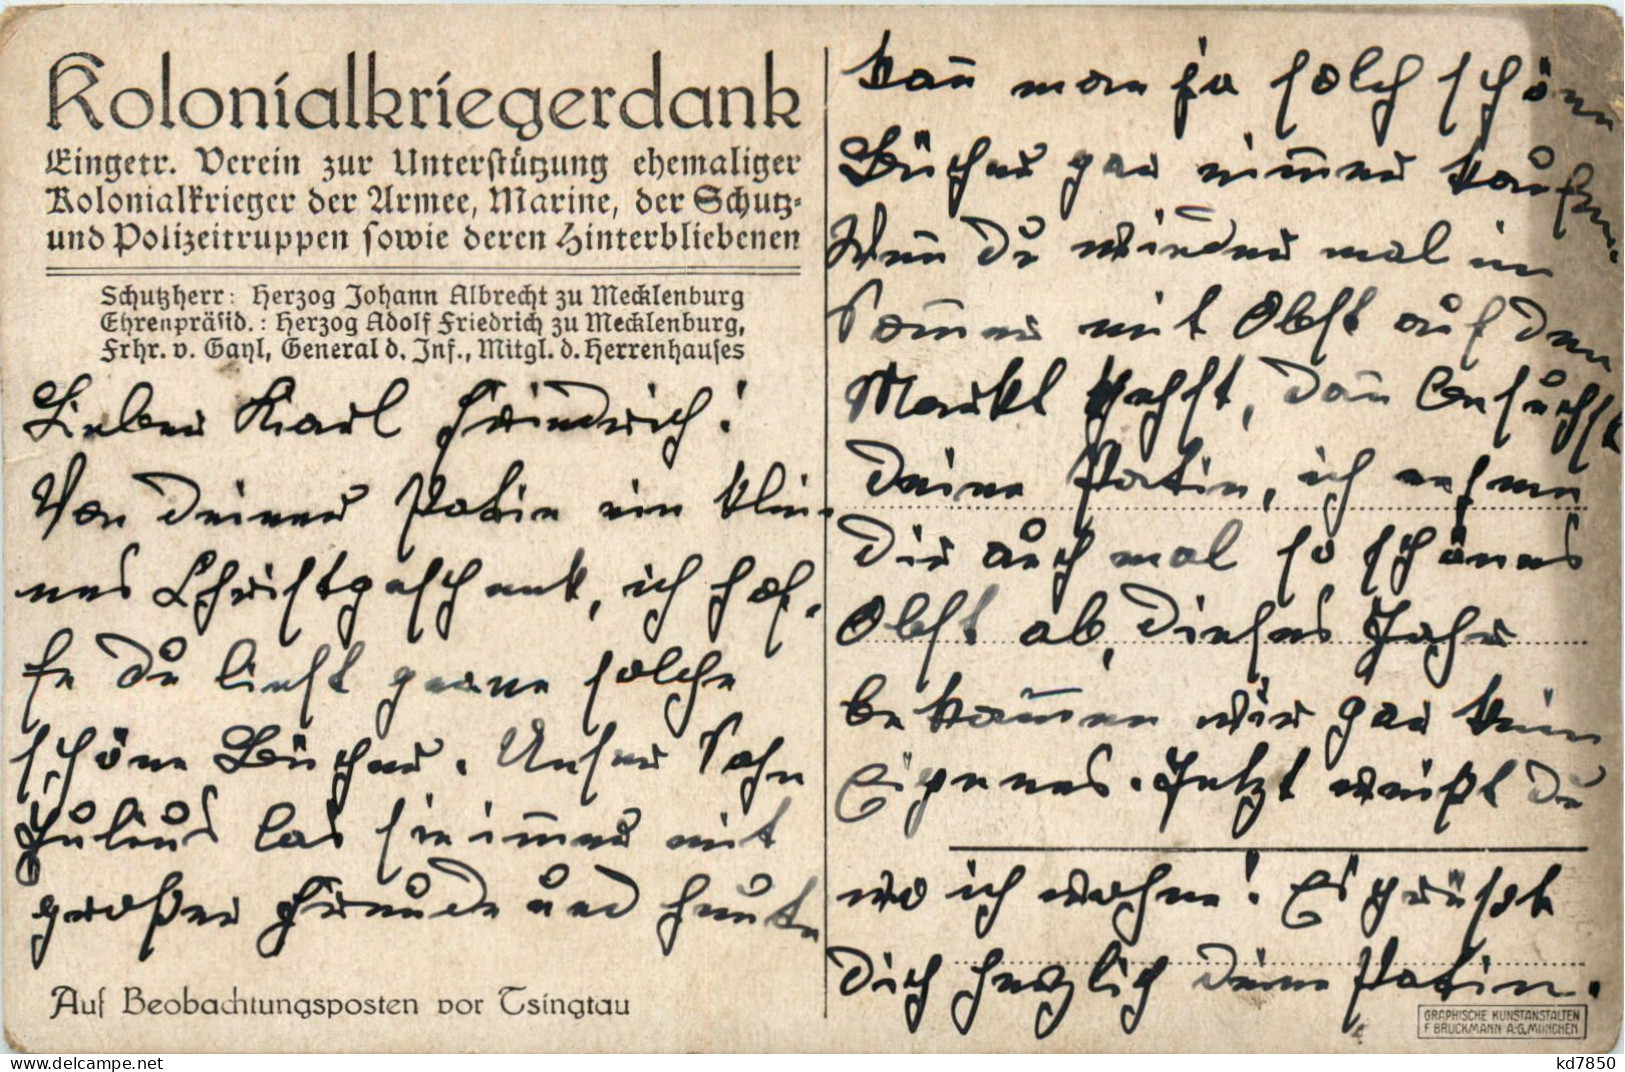 Kolonialkriegerdank
Eingetr. Verein zur Unterstützung ehemaliger
Kolonialkrieger der Armee, Marine, der Schutz-
und Polizeitruppen sowie deren Hinterbliebenen
Schutzherr: Herzog Johann Albrecht zu Mecklenburg
Ehrenpräsid.: Herzog Adolf Friedrich zu Mecklenburg,
Frhr. v. Gayl, General d. Inf., Mitgl. d. Herrenhauses
Lieber Karl Friedrich!
Von Deiner Patin ein klei-
nes Christgeschenk, ich hof-
fe Du liest gerne solche
schöne Bücher. Unser Sohn
Julius las sie immer mit
großer Freude und heute
Auf Beobachtungsposten vor Tsingtau
kann man ja solch schöne
Bücher gar nimmer kaufen.
Wenn Du wieder mal im
Sommer mit Obst auf den
Markt gehst, dann besuchst
Deine Patin, ich nehme
Dir auch mal so schönes
Obst ab, dieses Jahr
bekommen wir gar kein
Eigenes. Jetzt weißt Du
wo ich wohne! Es grüßt
Dich herzlich Deine Patin.
GRAPHISCHE KUNSTANSTALTEN
F. BRUCKMANN A.G. MÜNCHEN
kd7850